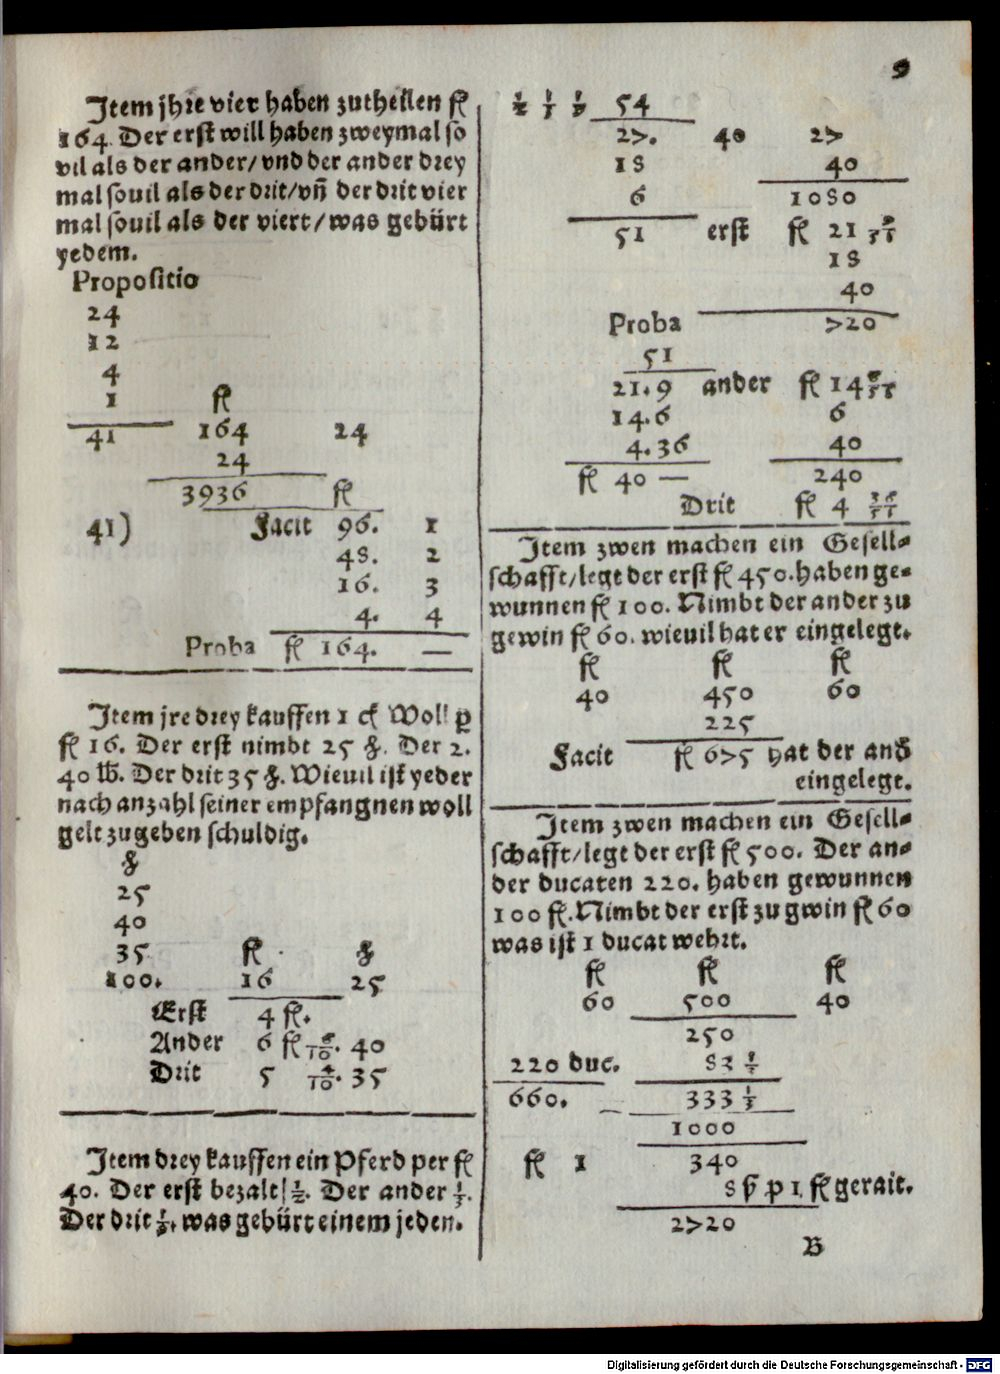 9
Item jhre vier haben zutheilen fl
164. Der erst will haben zweymal so
vil als der ander/vnd der ander drey
mal souil als der drit/vñ der drit vier
mal souil als der viert/was gebürt
yedem.
Propositio
24
12
4
1 fl
41 164 24
24
3936 fl
41) Facit 96. 1
48. 2
16. 3
4. 4
Proba fl 164. —
Item jre drey kauffen 1 ct Woll p
fl 16. Der erst nimbt 25 ℔. Der 2.
40 ℔. Der drit 35 ℔. Wieuil ist yeder
nach anzahl seiner empfangnen woll
gelt zugeben schuldig.
℔
25
40
35 fl ℔
100. 16 25
Erst 4 fl.
Ander 6 fl 4/10. 40
Drit 5 6/10. 35
Item drey kauffen ein Pferd per fl
40. Der erst bezalt 1/2. Der ander 1/3.
Der drit 1/9. was gebürt einem jeden.
1/2 1/3 1/9 54
27. 40 27
18 40
6 1080
51 erst fl 21 9/51
18
40
Proba 720
51
21.9 ander fl 14 6/51
14.6 6
4.36 40
fl 40 — 240
Drit fl 4 36/51
Item zwen machen ein Gesell-
schafft/legt der erst fl 450. haben ge-
wunnen fl 100. Nimbt der ander zu
gewin fl 60. wieuil hat er eingelegt.
fl fl fl
40 450 60
225
Facit fl 675 hat der and
eingelegt.
Item zwen machen ein Gesell-
schafft/legt der erst fl 500. Der an-
der ducaten 220. haben gewunnen
100 fl. Nimbt der erst zu gwin fl 60
was ist 1 ducat wehrt.
fl fl fl
60 500 40
250
220 duc. 83 1/3
660. 333 1/3
1000
fl 1 340
8 ß p 1 fl gerait.
2720
B
Digitalisierung gefördert durch die Deutsche Forschungsgemeinschaft - DFG